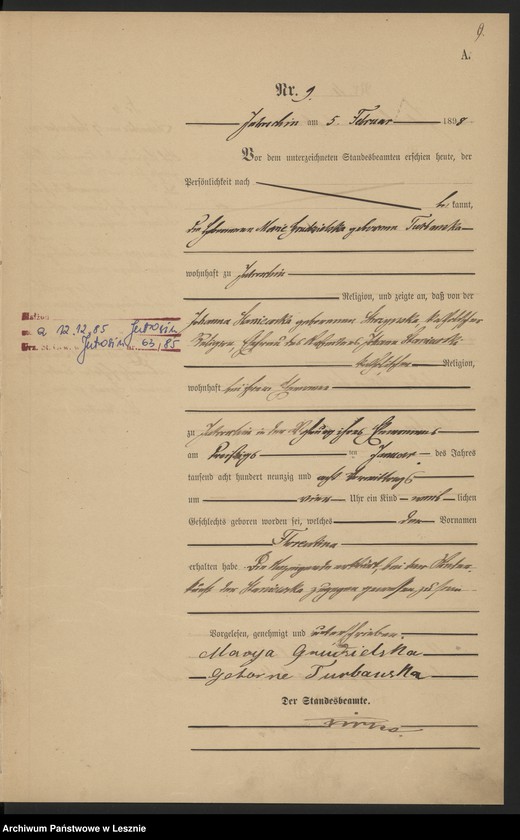 9.
A.
Nr. 9.
Jutroschin am 5. Februar 1898.
Vor dem unterzeichneten Standesbeamten erschien heute, der
Persönlichkeit nach
be kannt,
die Hebamme Marie Grudzielska geborene Turbanska
wohnhaft zu Jutroschin
Religion, und zeigte an, daß von der
Johanna geborenen katholischer
Religion, Ehefrau des Johann
katholischer Religion,
wohnhaft bei ihrem Ehemanne
zu Jutroschin in der Wohnung ihres Ehemannes
am dreißigsten Januar des Jahres
tausend acht hundert neunzig und acht Vormittags
um vier Uhr ein Kind weib lichen
Geschlechts geboren worden sei, welches den Vornamen
Florentina
erhalten habe. Die Anzeigende erklärt, bei der Nieder-
kunft der zugegen gewesen zu sein
Vorgelesen, genehmigt und unterschrieben.
Marya Grudzielska
geborne Turbanska
Der Standesbeamte.
12.12.85 Jutrosin
Jutrosin 63/85
Archiwum Państwowe w Lesznie